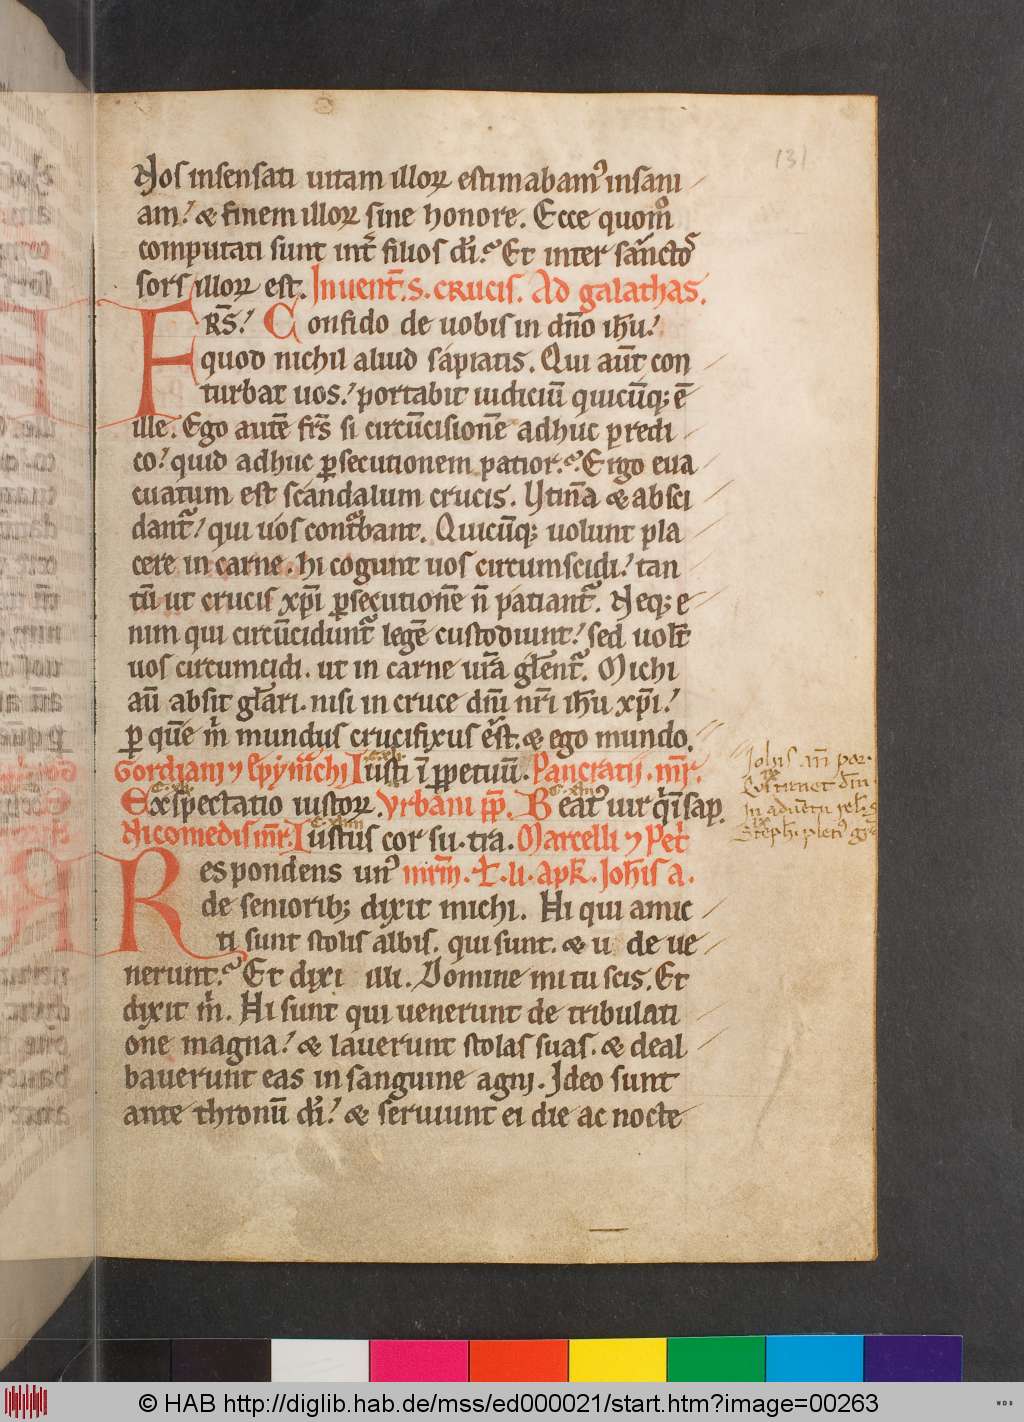 131
Nos insensati uitam illoꝝ estimabamꝰ insani
am. & finem illoꝝ sine honore. Ecce quomͦ
computati sunt int̄ filios di. Et inter sancto
sors illoꝝ est. Inuent̄. s. crucis. Ad galathas.
FRS. Confido de uobis in dn̄o ihu.
quod nichil aliud sapiatis. Qui aut̄ con
turbat uos. portabit iudiciū quicūqꝫ ē
ille. Ego autē fr̄s si circūcisionē adhuc predi
co. quid adhuc ꝑsecutionem patior. Ergo eua
cuatum est scandalum crucis. Utinā & absci
dant᷑. qui uos cont᷑bant. Quicūqꝫ uolunt pla
cere in carne. hi cogunt uos circumscidi. tan
tū ut crucis xp̄i ꝑsecutionē n̄ patiant᷑. Neqꝫ e
nim qui circūcidunt᷑ legē custodiunt. sed uolt̄
uos circumcidi. ut in carne ur̄a gl̄ent᷑. Michi
au̅ absit gl̄ari. nisi in cruce dn̄i nr̄i ihu xp̄i.
ꝑ quē m̄ mundus crucifixus est. & ego mundo.
Gordiani ⁊ epymachi Iusti ī ꝑpetuū. Pancratii. mr̄.
Exspectatio iustoꝝ. Vrbani pp̄. Beatꝰ uir qī sap.
Nicomedis mr̄. Iustus cor su. tra. Marcelli ⁊ Pet̄
Respondens unꝰ mr̄m. L. li. apk. Johīs a.
de senioribꝫ dixit michi. Hi qui amic
ti sunt stolis albis. qui sunt. & u de ue
nerunt. Et dixi illi. Domine mi tu scis. Et
dixit m̄. Hi sunt qui uenerunt de tribulati
one magna. & lauerunt stolas suas. & deal
bauerunt eas in sanguine agni. Ideo sunt
ante thronū di. & seruiunt ei die ac nocte
Johīs an̄ por.
© HAB http://diglib.hab.de/mss/ed000021/start.htm?image=00263